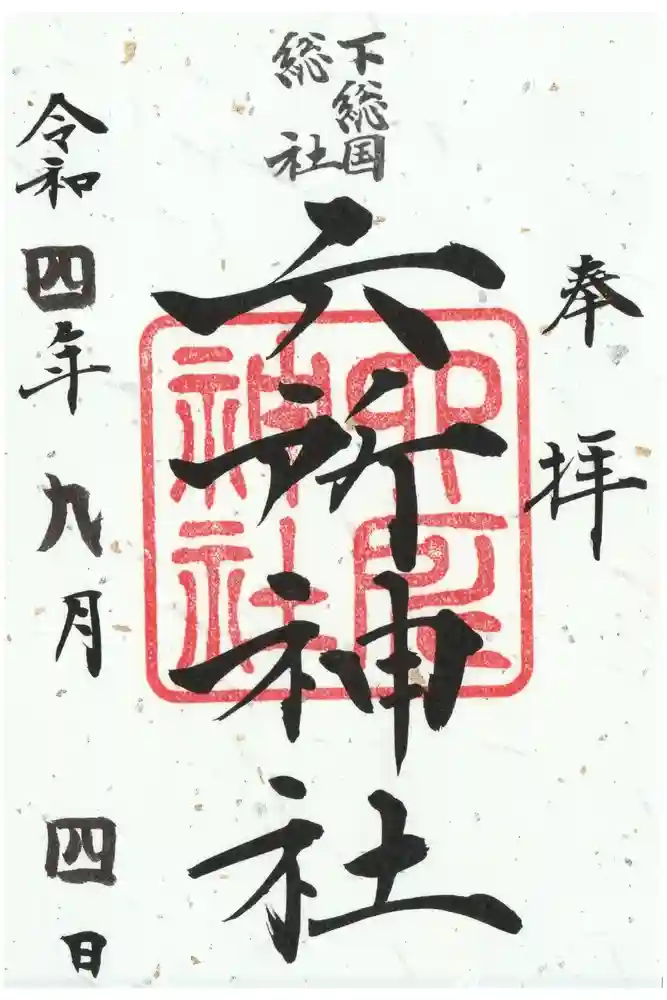 奉拝
下総国
総社
六所神社
令和四年九月四日